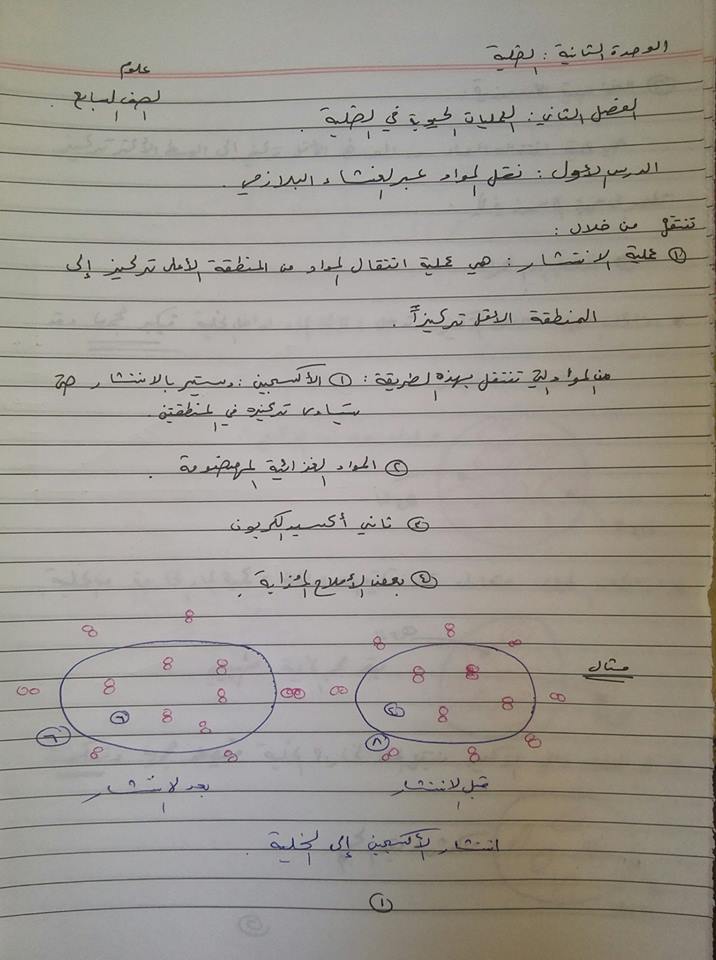 الوحدة الثانية : الخلية
علوم
الصف السابع .
الفصل الثاني : العمليات الحيوية في الخلية .
الدرس الأول : نقل المواد عبر الغشاء البلازمي .
تنتقل من خلال :
١) عملية الانتشار : هي عملية انتقال المواد من المنطقة الأعلى تركيز إلى
المنطقة الأقل تركيزاً .
من المواد التي تنتقل بهذه الطريقة : ١) الأكسجين : ويستمر بالانتشار حتى
يتساوى تركيزه في المنطقتين .
٢) المواد الغذائية المهضومة .
٣) ثاني أكسيد الكربون
٤) بعض الأملاح الذاية .
مثال
٨
٦
٦
قبل الانتشار
بعد الانتشار
انتشار الأكسجين إلى الخلية .
١